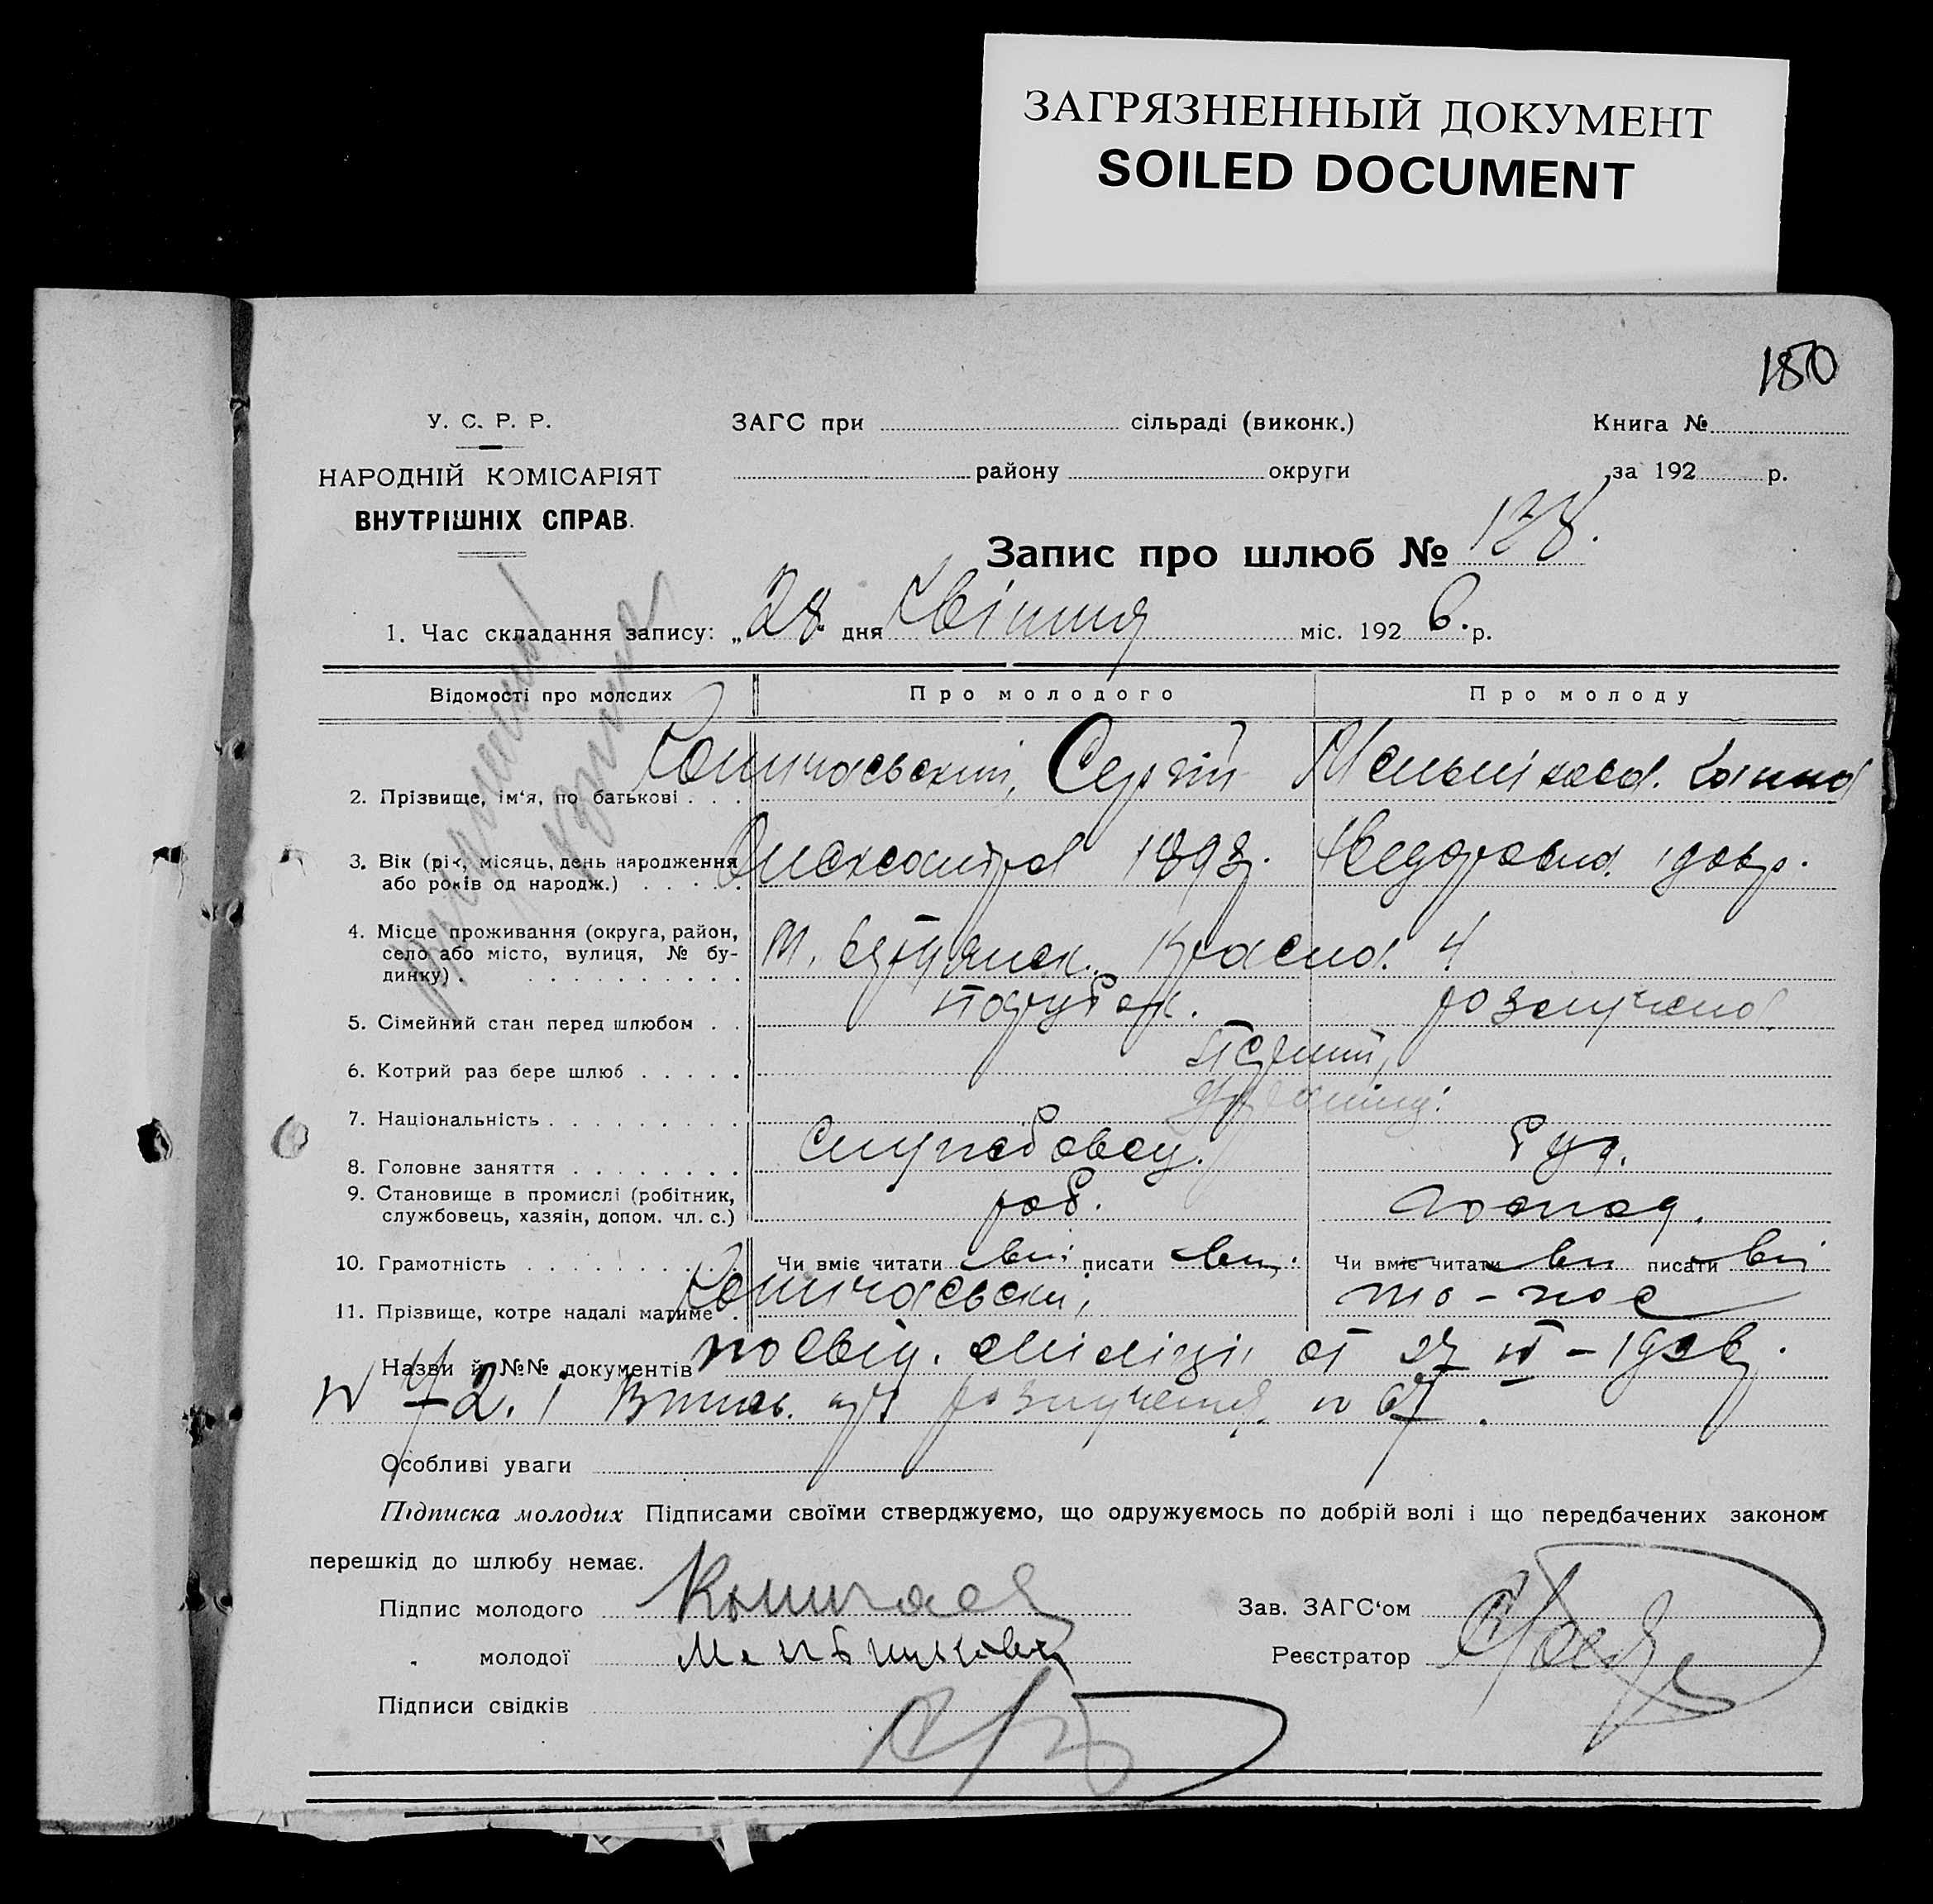 ЗАГРЯЗНЕННЫЙ ДОКУМЕНТ
SOILED DOCUMENT
180
У. С. Р. Р.
НАРОДНІЙ КОМІСАРІЯТ
ВНУТРІШНІХ СПРАВ.
ЗАГС при сільраді (виконк.)
району округи
Книга №
за 192 р.
Запис про шлюб № 128.
1. Час складання запису: „28" дня Квітня міс. 1926. р.
Відомості про молодих Про молодого Про молоду
2. Прізвище, ім'я, по батькові . . . Сергій
3. Вік (рік, місяць, день народження
або років од народж.) . . . . . 1898.
4. Місце проживання (округа, район,
село або місто, вулиця, № бу-
динку) . . . . . . . . . . . М. Красна. 4
5. Сімейний стан перед шлюбом . . парубок. розлучена
6. Котрий раз бере шлюб . . . . . Перший,
7. Національність . . . . . . . . .
8. Головне заняття . . . . . . . . Службовец.
9. Становище в промислі (робітник,
службовець, хазяін, допом. чл. с.) роб. господ.
10. Грамотність . . . . . . . . . . Чи вміє читати вмі писати вмі. Чи вміє читати вмі писати вмі
11. Прізвище, котре надалі матиме . то-же
Назви й №№ документів посвід. міліціі от 27 IV - 1926.
N 42. і Випись про розлучення N 67.
Особливі уваги
Підписка молодих Підписами своїми стверджуємо, що одружуємось по добрій волі і що передбачених законом
перешкід до шлюбу немає.
Підпис молодого
„ молодої Мельникова
Підписи свідків
Зав. ЗАГС'ом
Реєстратор